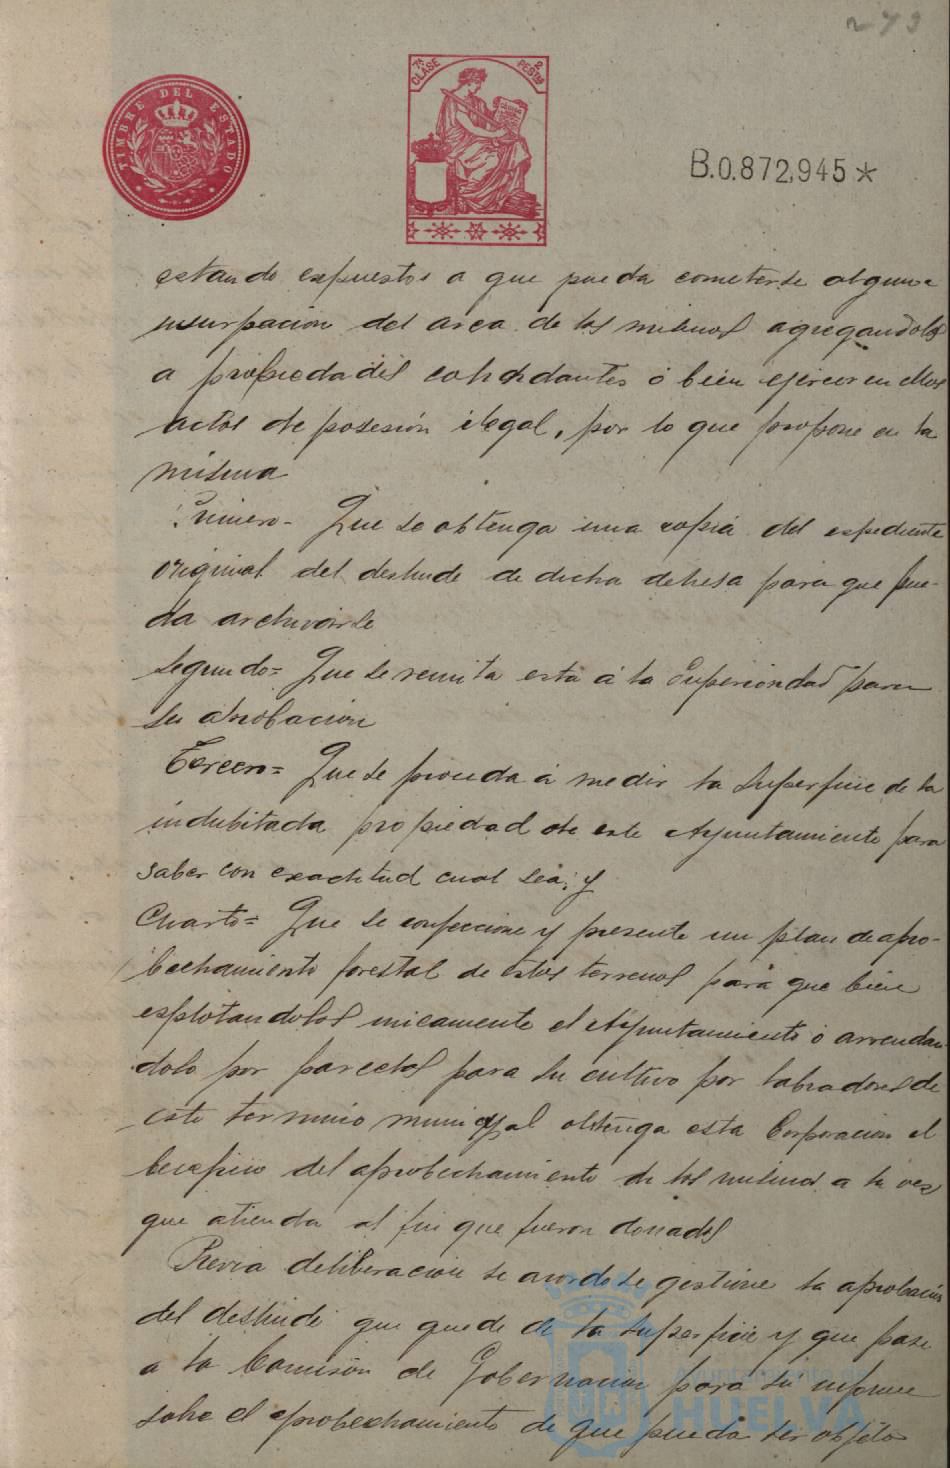 273
TIMBRE DEL ESTADO
7ª CLASE 2 PESTAS
B.0.872,945*
estando espuestos a que pueda cometerse alguna
usurpacion del area de los mismos agregandolos
a propiedades colindantes ó bien ejercer en ellos
actos de posesión ilegal, por lo que propone en la
misma
Primero- Que se obtenga una copia del espediente
original del deslinde de dicha dehesa para que pue-
da archivarse
Segundo= Que se remita esta á la Superioridad para
su aprobacion
Tercero= Que se proceda á medir la superficie de la
indubitada propiedad de este Ayuntamiento para
saber con exactitud cual sea; y
Cuarto= Que se confeccione y presente un plan de apro-
bechamiento forestal de estos terrenos para que bien
esplotandolos unicamente el Ayuntamiento ó arrendan
dolo por parcelas para su cultivo por labradores de
este termino municipal obtenga esta Corporacion el
beneficio del aprobechamiento de los mismos a la vez
que atienda al fin que fueron donados
Previa deliberacion se acordo se gestione la aprobación
del deslinde que quede de la superficie y que pase
a la Comisión de Gobernacion para su informe
sobre el aprobechamiento de que pueda ser objeto
Ayuntamiento de
HUELVA